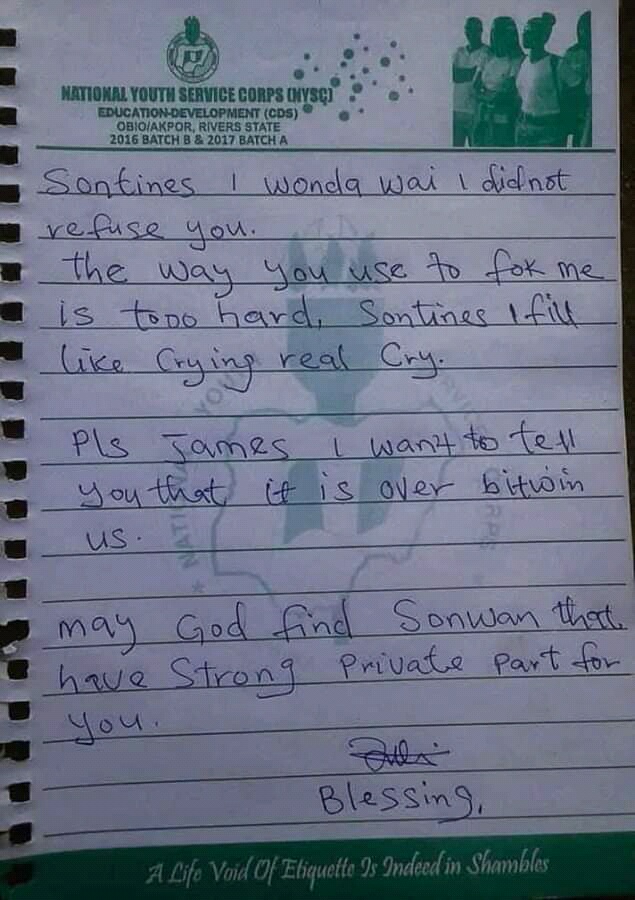 NATIONAL YOUTH SERVICE CORPS (NYSC)
EDUCATION-DEVELOPMENT (CDS)
OBIO/AKPOR, RIVERS STATE
2016 BATCH B & 2017 BATCH A
Sontines I wonda wai I did not
refuse you.
the way you use to fok me
is tooo hard, Sontines I fill
like Crying real Cry.
Pls James I want to tell
you that it is over bitwin
us.
may God find Sonwan that
have Strong Private Part for
you.
Blessing,
A Life Void Of Etiquette Is Indeed in Shambles